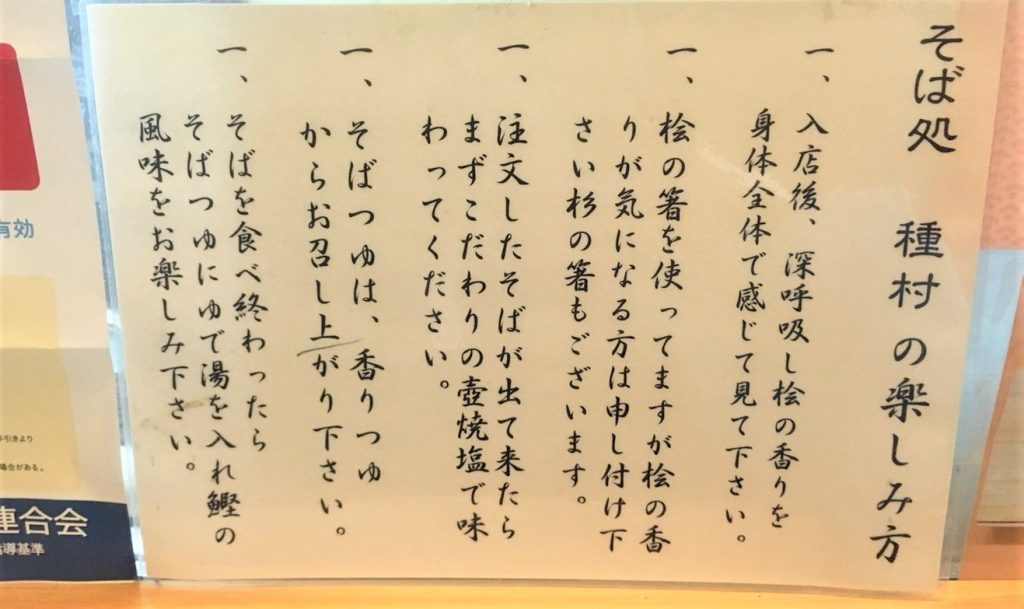 そば処 種村の楽しみ方
一、入店後、深呼吸し桧の香りを
身体全体で感じて見て下さい。
一、桧の箸を使ってますが桧の香
りが気になる方は申し付け下
さい杉の箸もございます。
一、注文したそばが出て来たら
まずこだわりの壺焼塩で味
わってください。
一、そばつゆは、香りつゆ
からお召し上がり下さい。
一、そばを食べ終わったら
そばつゆにゆで湯を入れ鰹の
風味をお楽しみ下さい。
有効
手引きより
場合がある。
連合会
指導基準